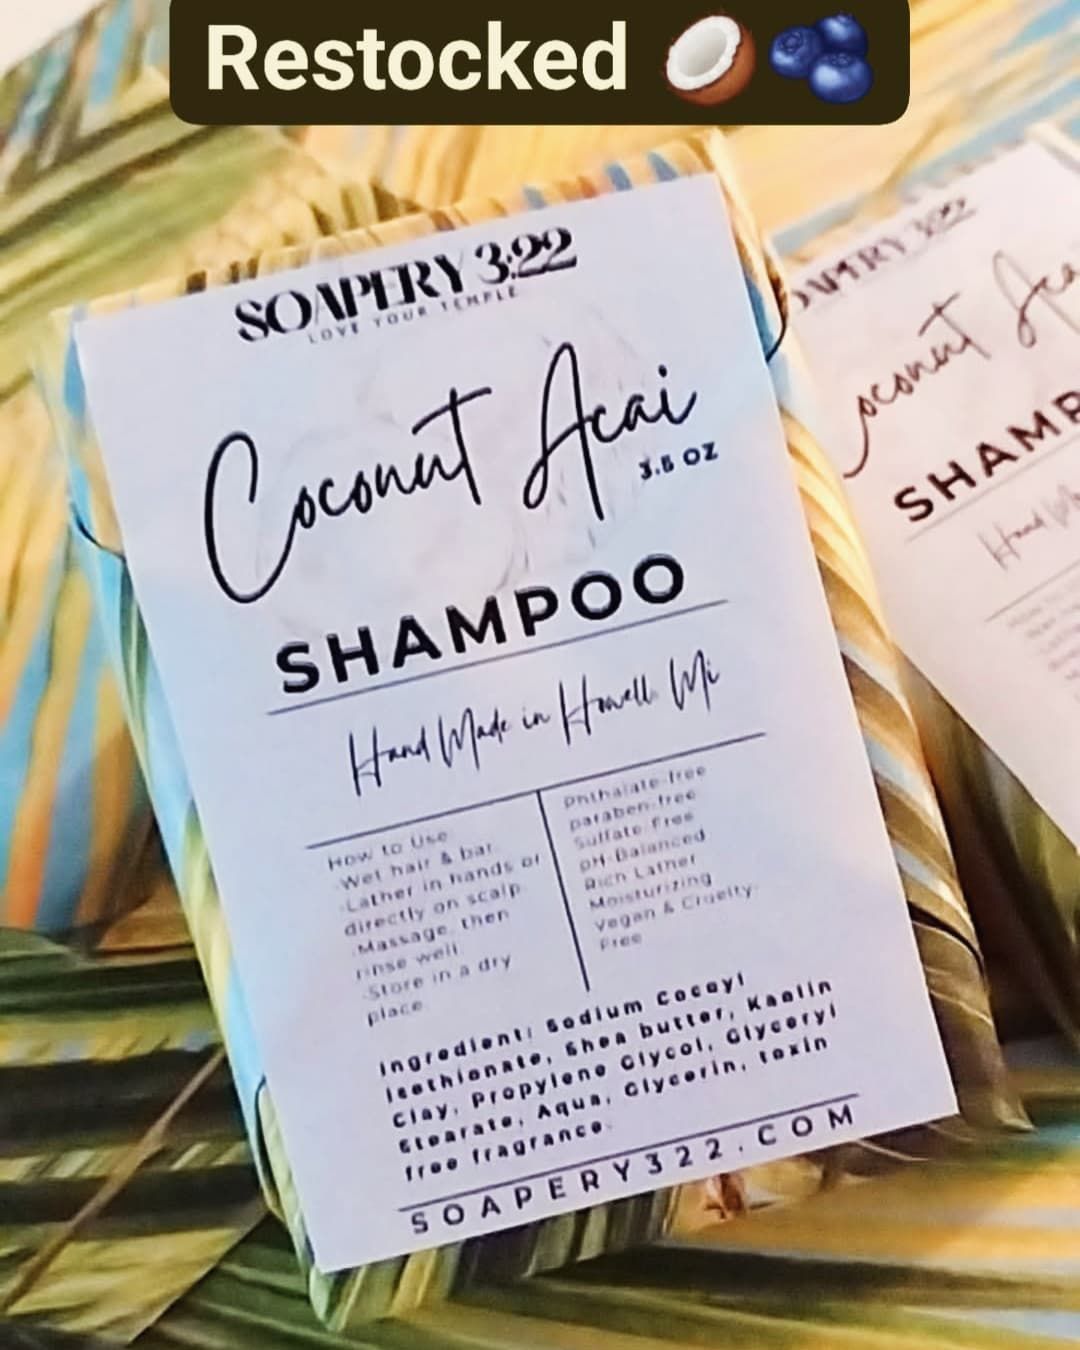 Restocked 🥥🫐
SOAPERY 3:22
LOVE YOUR TEMPLE
Coconut Acai
3.5 OZ
SHAMPOO
Hand Made in Howell Mi
How to Use
·Wet hair & bar.
·Lather in hands or
directly on scalp
·Massage, then
rinse well.
·Store in a dry
place.
Phthalate-free
paraben-free
Sulfate Free
pH-Balanced
Rich Lather
Moisturizing
Vegan & Cruelty-
Free
Ingredient: Sodium Cocoyl
Isethionate, Shea butter, Kaolin
Clay, Propylene Glycol, Glyceryl
Stearate, Aqua, Glycerin, toxin
free fragrance.
SOAPERY322.COM
SOAPERY 3:22
Coconut Aca
SHAMP
Hand M